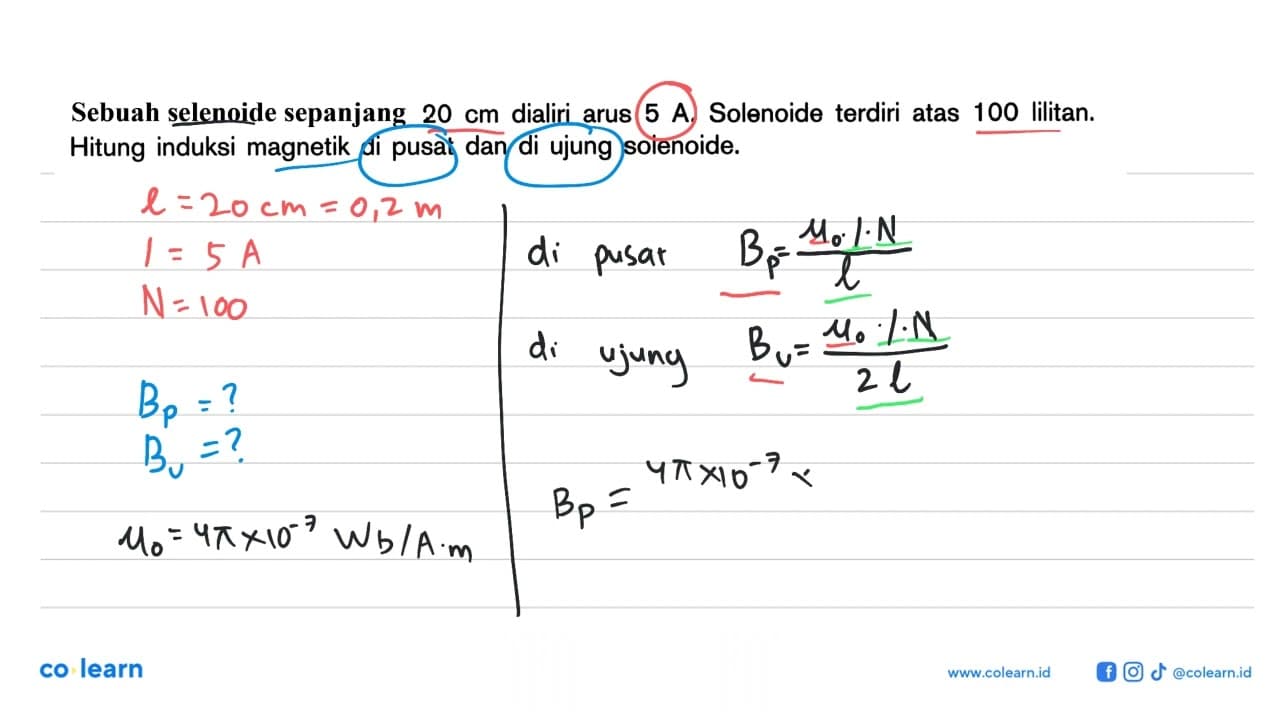 Sebuah selenoide sepanjang 20 cm dialiri arus 5 A. Solenoide terdiri atas 100 lilitan.
Hitung induksi magnetik di pusat dan di ujung solenoide.
l = 20 cm = 0,2 m
I = 5 A
N = 100
Bp = ?
Bu = ?
μ₀ = 4π × 10⁻⁷ Wb/A·m
di pusat Bp = μ₀·I·N / l
di ujung Bu = μ₀·I·N / 2l
Bp = 4π × 10⁻⁷ ×
co learn
www.colearn.id
@colearn.id